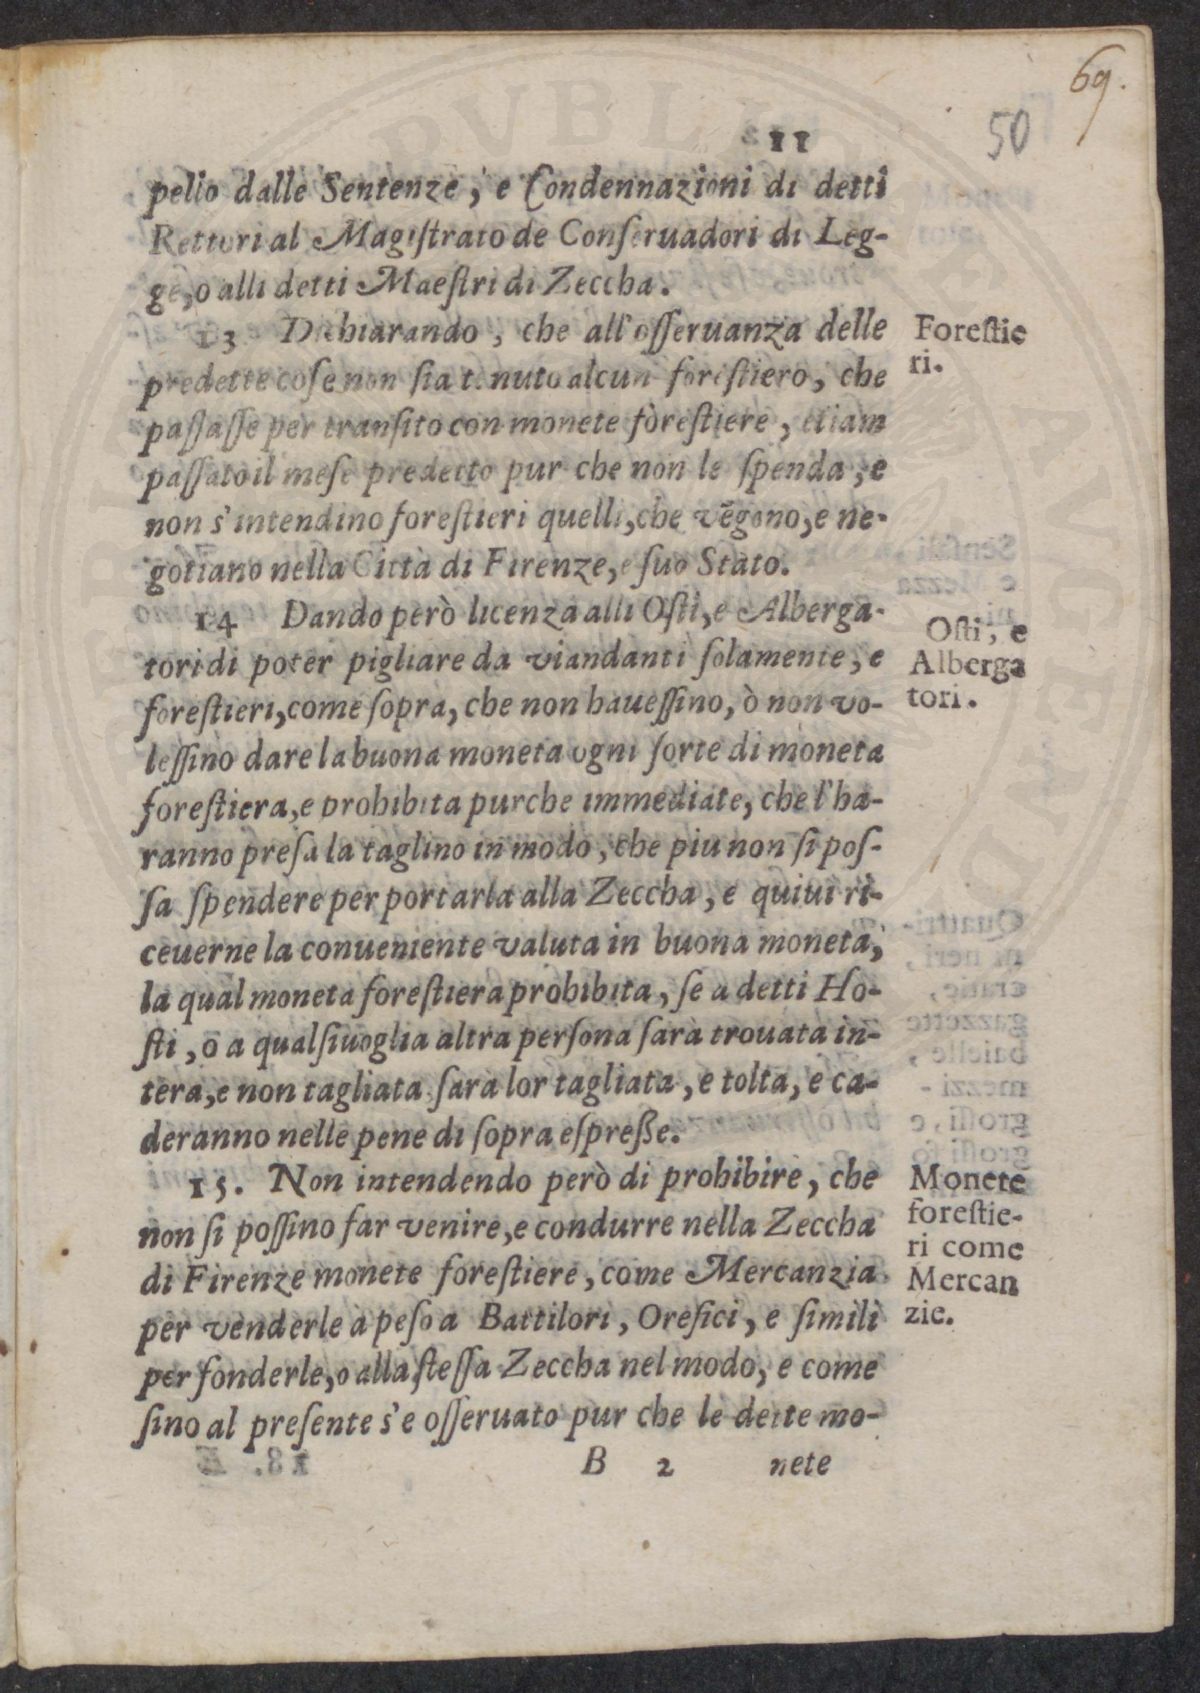 69.
50
11
pello dalle Sentenze, e Condennazioni di detti
Rettori al Magiſtrato de Conſeruadori di Leg-
ge, o alli detti Maeſtri di Zeccha.
13 Dichiarando, che all'oſſeruanza delle
predette coſe non ſia tenuto alcun foreſtiero, che
paſſaſſe per tranſito con monete foreſtiere, etiam
paſſato il meſe predetto pur che non le ſpenda, e
non s'intendino foreſtieri quelli, che vēgono, e ne-
gotiano nella Città di Firenze, e ſuo Stato.
14 Dando però licenza alli Oſti, e Alberga-
tori di poter pigliare da viandanti ſolamente, e
foreſtieri, come ſopra, che non haueſſino, ò non vo-
leſſino dare la buona moneta ogni ſorte di moneta
foreſtiera, e prohibita purche immediate, che l'ha-
ranno preſa la taglino in modo, che piu non ſi poſ-
ſa ſpendere per portarla alla Zeccha, e quiui ri-
ceuerne la conueniente valuta in buona moneta,
la qual moneta foreſtiera prohibita, ſe a detti Ho-
ſti, o a qualſiuoglia altra perſona ſarà trouata in-
tera, e non tagliata ſara lor tagliata, e tolta, e ca-
deranno nelle pene di ſopra eſpreſſe.
15. Non intendendo però di prohibire, che
non ſi poſſino far venire, e condurre nella Zeccha
di Firenze monete foreſtiere, come Mercanzia
per venderle à peſo a Battilori, Orefici, e ſimili
per fonderle, o alla ſteſſa Zeccha nel modo, e come
ſino al preſente s'e oſſeruato pur che le dette mo-
B 2 nete
Foreſtie
ri.
Oſti, e
Alberga
tori.
Monete
foreſtie-
ri come
Mercan
zie.